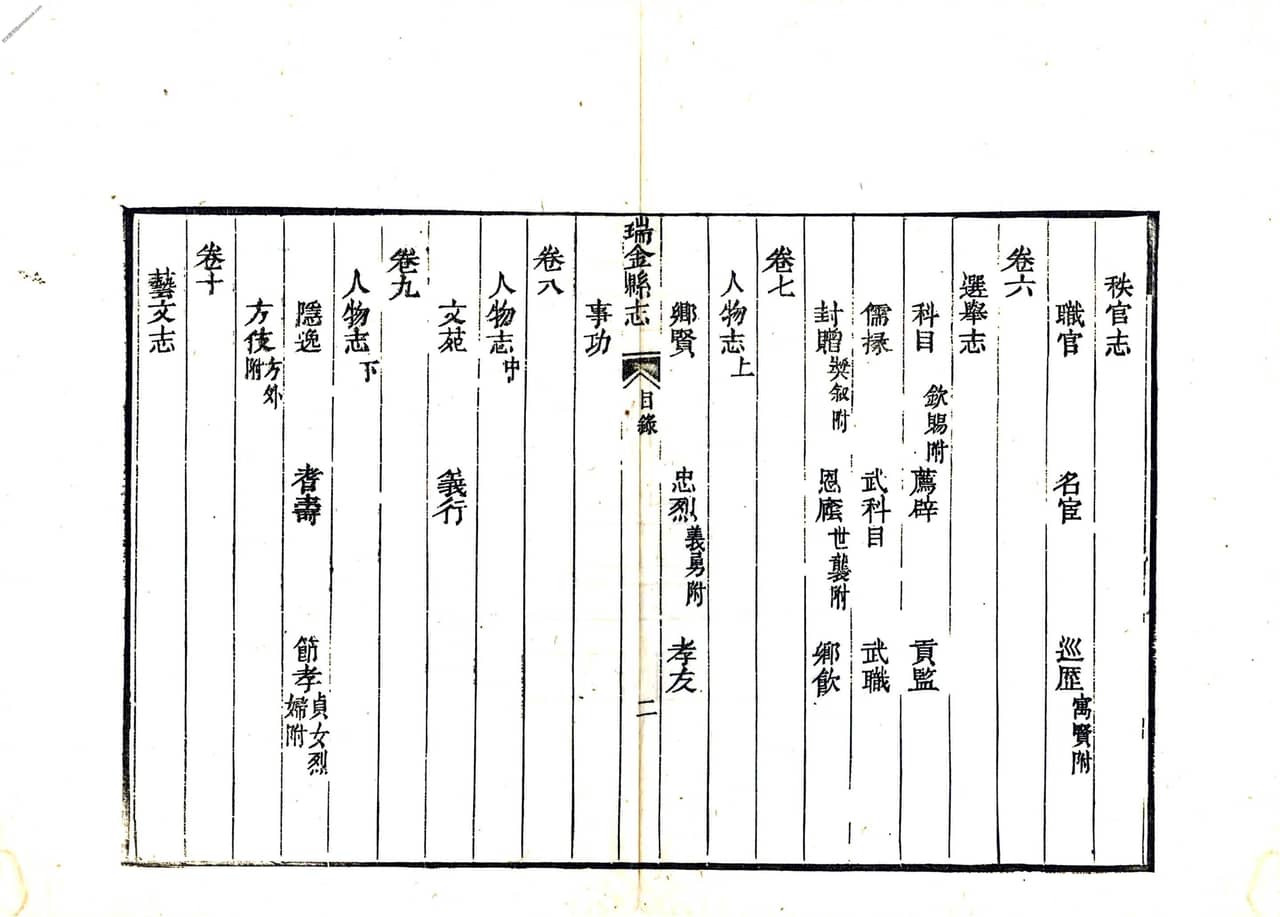 秩官志
職官 名宦 巡歷寓賢附
卷六
選舉志
科目欽賜附 薦辟 貢監
儒掾 武科目 武職
封贈獎叙附 恩廕世襲附 鄉飲
卷七
人物志上
鄉賢 忠烈義勇附 孝友
瑞金縣志 目錄 二
事功
卷八
人物志中
文苑 義行
卷九
人物志下
隱逸 耆壽 節孝貞女烈婦附
方伎方外附
卷十
藝文志